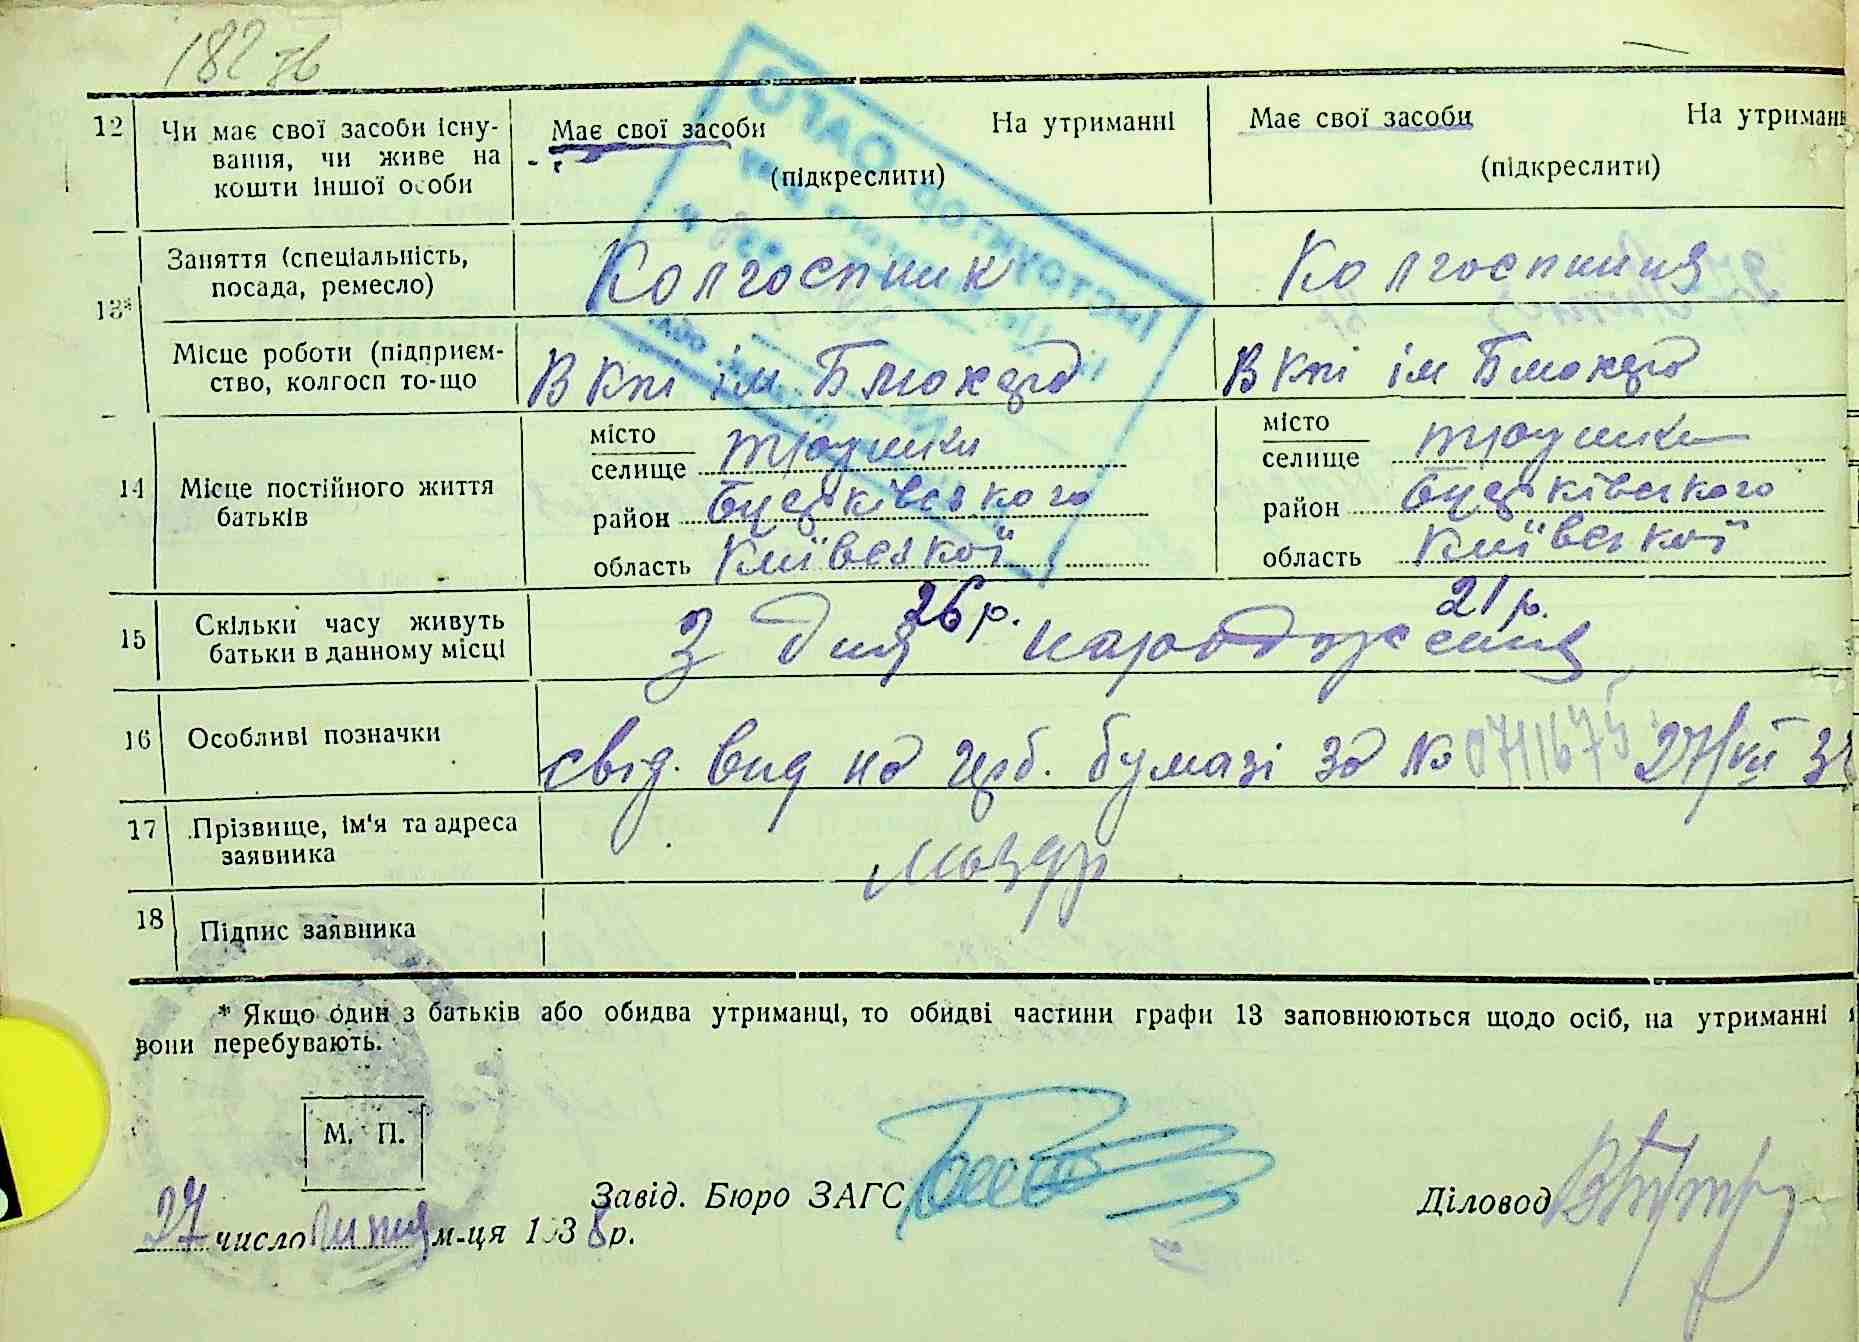 182 зв
12 Чи має свої засоби існу- Має свої засоби На утриманні Має свої засоби На утриман
вання, чи живе на
кошти іншої особи (підкреслити) (підкреслити)
Заняття (спеціальність, Колгоспник Колгоспниця
посада, ремесло)
13*
Місце роботи (підприєм- В кпі ім Блюхера В кпі ім Блюхера
ство, колгосп то-що
місто місто
селище Трушки селище Трушки
14 Місце постійного життя
батьків район район
область Київської область Київської
26 р. 21 р.
15 Скільки часу живуть З дня народження
батьки в данному місці
16 Особливі позначки свід. вид на герб. бумазі за № 27/VII 38
17 Прізвище, ім'я та адреса
заявника
18 Підпис заявника
* Якщо один з батьків або обидва утриманці, то обидві частини графи 13 заповнюються щодо осіб, на утриманні
вони перебувають.
М. П.
Завід. Бюро ЗАГС Діловод
27 число липня м-ця 1938 р.